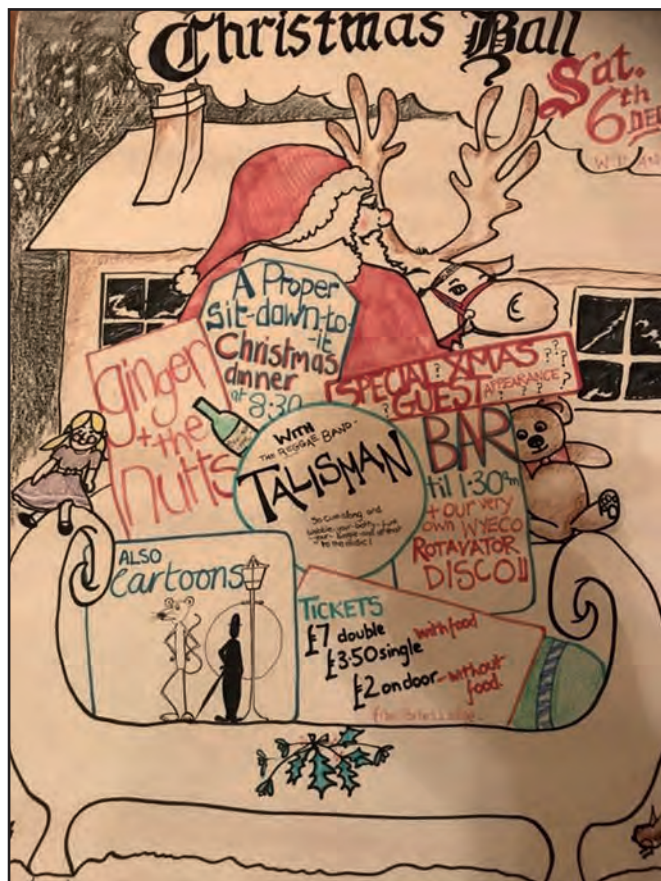 Christmas Ball
Sat.
6th
DEC
A Proper
Sit-down-to
-it
Christmas
dinner
at 8:30
ginger
+ the
nutts
SPECIAL XMAS ???
? GUEST APPEARANCE ?
WITH
THE REGGAE BAND -
TALISMAN
So cum along and
to the music!
BAR
til 1:30am
+ our very
own WYECO
ROTAVATOR
DISCO!!
ALSO
Cartoons
TICKETS
£7 double with food
£3·50 single
£2 on door - without
food